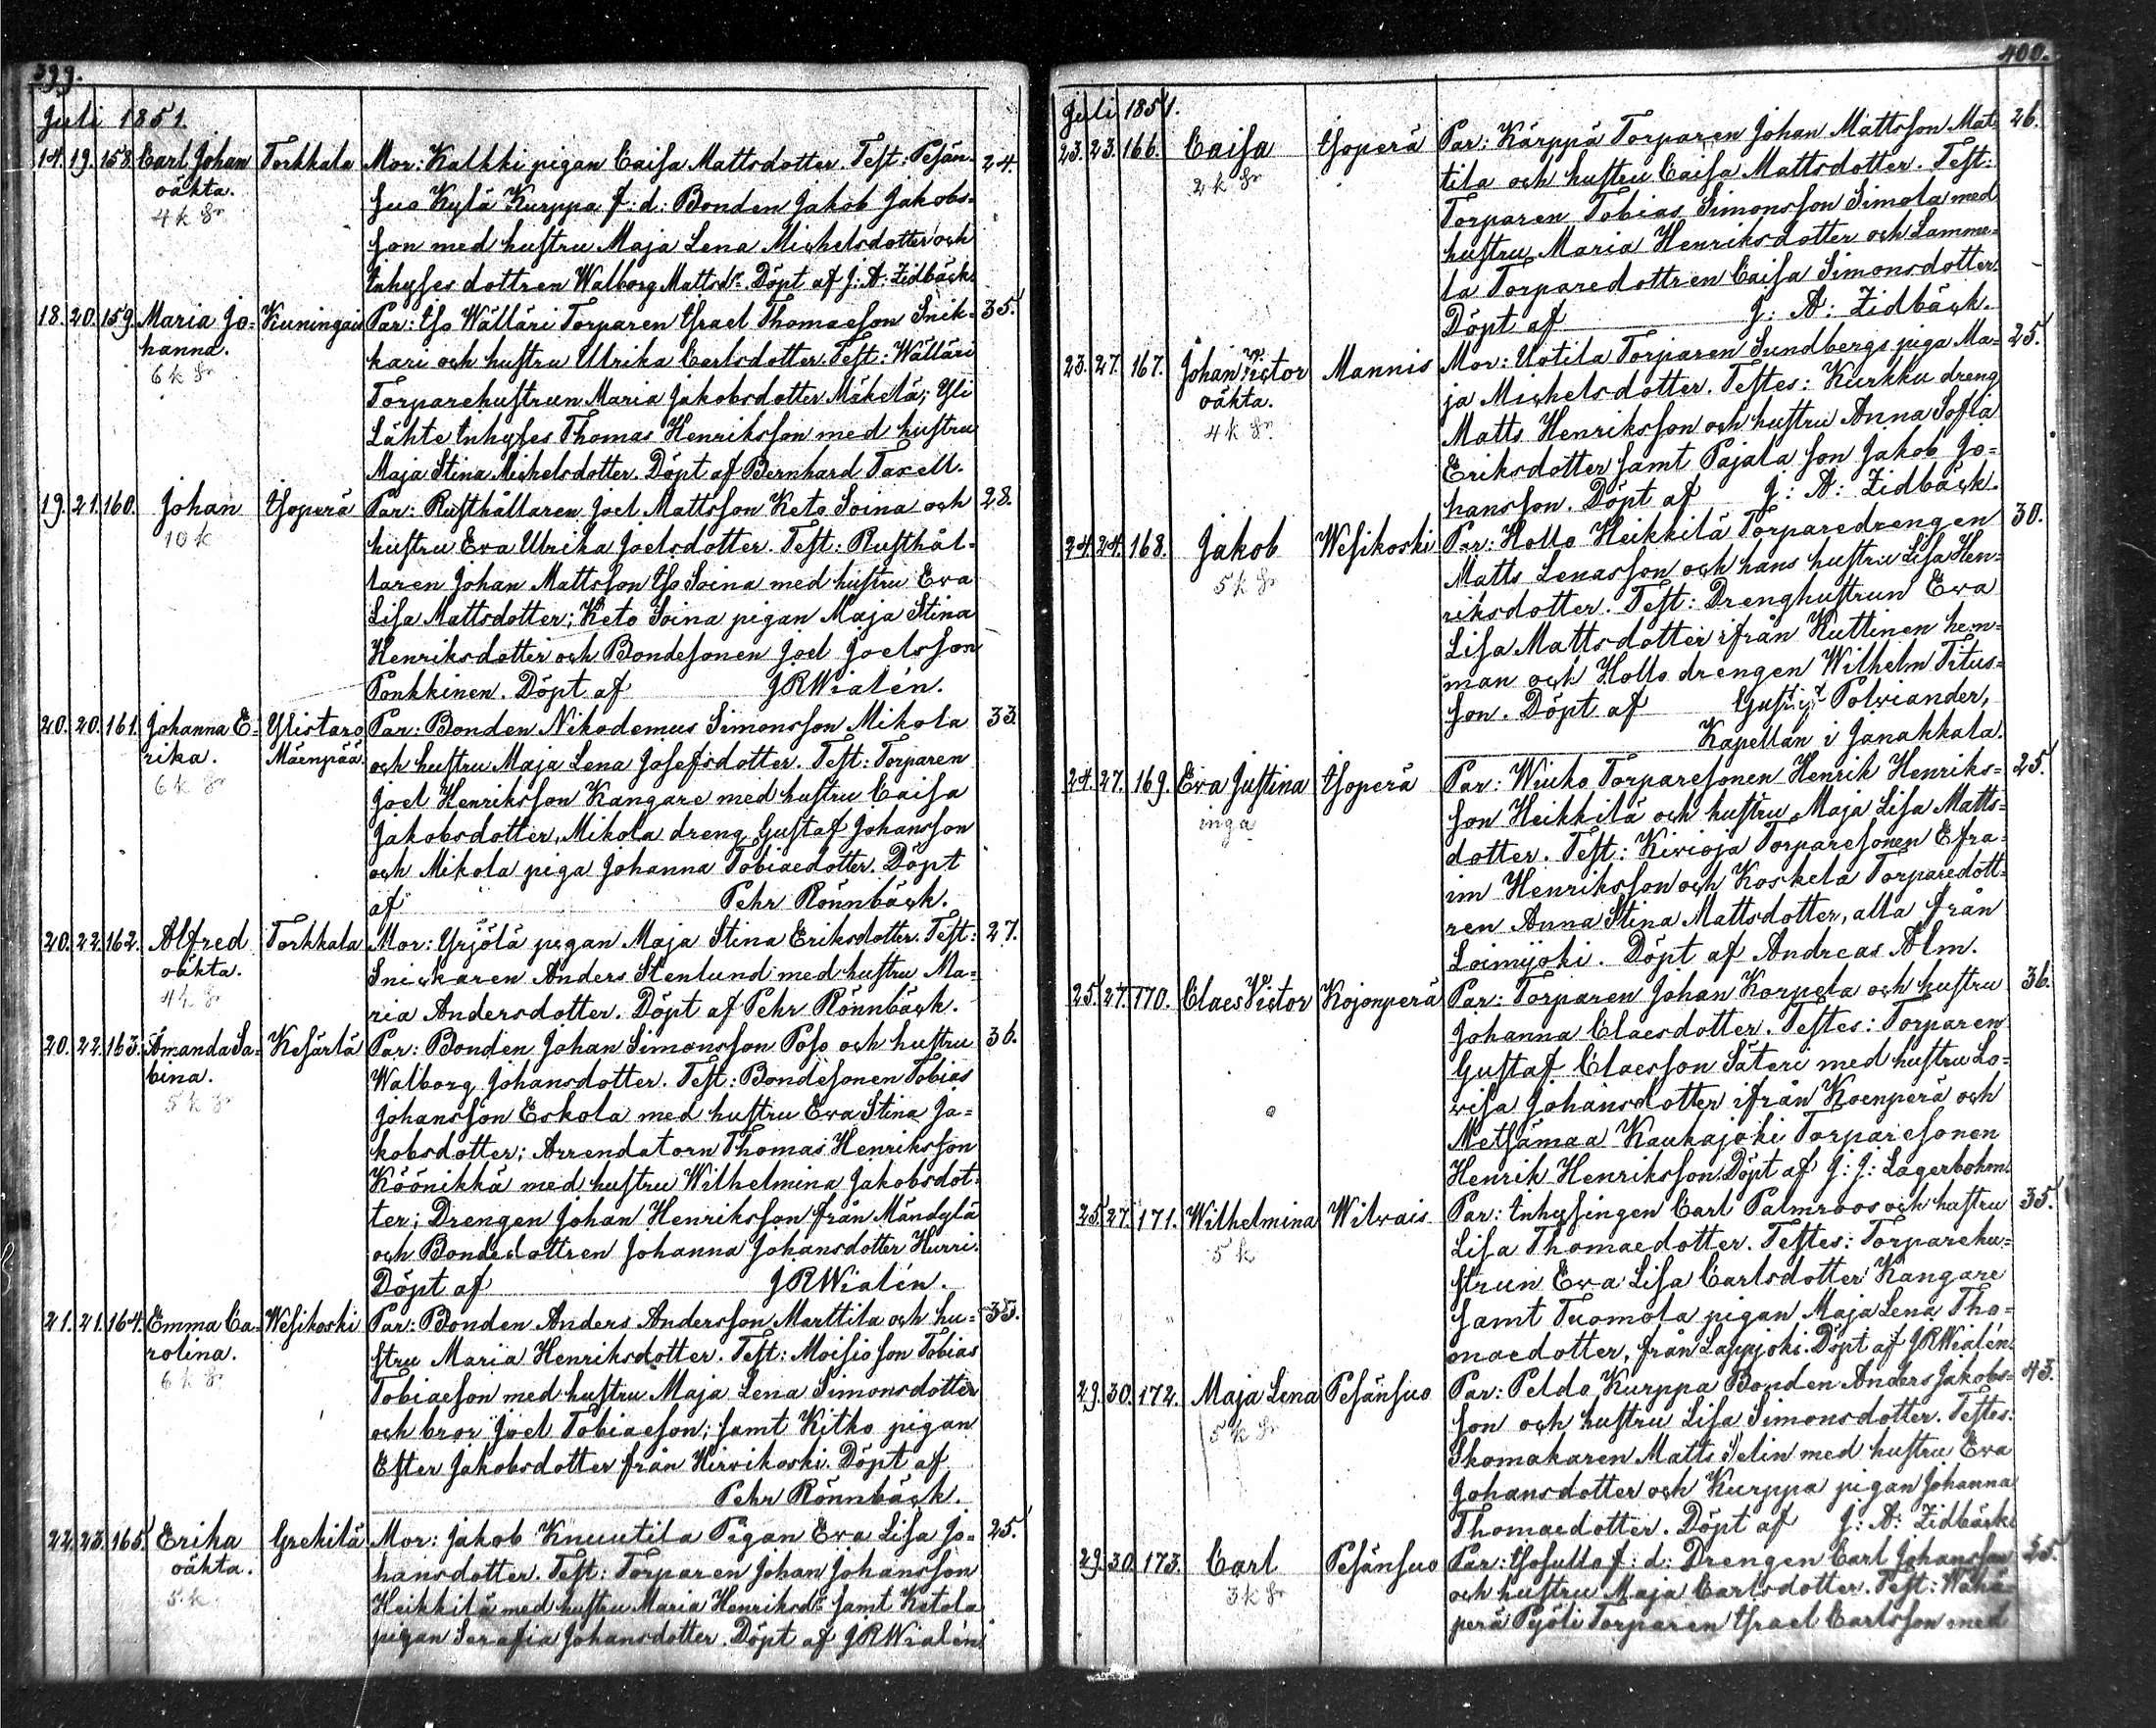 399.
Juli 1851.
14. 19. 158. Carl Johan Torkkala Mor: Kalkki pigan Caisa Mattsdotter. Test: Pesän- 24.
oäkta. suo Kylä Kurppa f: d: Bonden Jakob Jakobs-
4 k gr son med hustru Maja Lena Michelsdotter och
Inhyses dottren Walborg Mattsdr. Döpt af J: A: Zidbäck.
18. 20. 159. Maria Jo- Kuningais Par: Iso Wälläri Torparen Israel Thomaeson Snik- 35.
hanna. kari och hustru Ulrika Carlsdotter. Test: Wälläri
6 k gr Torparehustrun Maria Jakobsdotter Mäkelä; Yli
Lähte Inhyses Thomas Henriksson med hustru
Maja Stina Michelsdotter. Döpt af Bernhard Taxell.
19. 21. 160. Johan Isoperä Par: Rusthållaren Joel Mattsson Keto Soina och 28.
10 k hustru Eva Ulrika Joelsdotter. Test: Rusthål-
laren Johan Mattsson Iso Soina med hustru Eva
Lisa Mattsdotter; Keto Soina pigan Maja Stina
Henriksdotter och Bondesonen Joel Joelsson
Ponkkinen. Döpt af JRWialén.
20. 20. 161. Johanna E- Ylistaro Par: Bonden Nikodemus Simonsson Mikola 33.
rika. Mäenpää. och hustru Maja Lena Josefsdotter. Test: Torparen
6 k gr Joel Henriksson Kangare med hustru Caisa
Jakobsdotter, Mikola dreng Gustaf Johansson
och Mikola piga Johanna Tobiaedotter. Döpt
af Pehr Rönnbäck.
20. 22. 162. Alfred Torkkala Mor: Yrjölä pigan Maja Stina Eriksdotter. Test: 27.
oäkta. Snickaren Anders Stenlund med hustru Ma-
4 k gr ria Andersdotter. Döpt af Pehr Rönnbäck.
20. 22. 163. Amanda Sa- Kesärlä Par: Bonden Johan Simonsson Poso och hustru 36.
bina. Walborg Johansdotter. Test: Bondesonen Tobias
5 k gr Johansson Eskola med hustru Eva Stina Ja-
kobsdotter; Arrendatorn Thomas Henriksson
Köönikkä med hustru Wilhelmina Jakobsdot-
ter; Drengen Johan Henriksson från Mändylä
och Bondedottren Johanna Johansdotter Hurri.
Döpt af JRWialén.
21. 21. 164. Emma Ca- Wesikoski Par: Bonden Anders Andersson Marttila och hu- 35.
rolina. stru Maria Henriksdotter. Test: Moisio son Tobias
6 k gr Tobiaeson med hustru Maja Lena Simonsdotter
och bror Joel Tobiaeson; samt Kitko pigan
Ester Jakobsdotter från Hirvikoski. Döpt af
Pehr Rönnbäck.
22. 23. 165. Erika Grekilä Mor: Jakob Knuutila Pigan Eva Lisa Jo- 25.
oäkta. hansdotter. Test: Torparen Johan Johansson
5 k Heikkilä med hustru Maria Henriksdr samt Ketola
pigan Serafia Johansdotter. Döpt af JRWialén.
400.
Juli 1851.
23. 23. 166. Caisa Isoperä Par: Kärppä Torparen Johan Mattsson Mat- 26.
2 k gr tila och hustru Caisa Mattsdotter. Test:
Torparen Tobias Simonsson Simola med
hustru Maria Henriksdotter och Lamme-
la Torparedottren Caisa Simonsdotter.
Döpt af J: A: Zidbäck.
23. 27. 167. Johan Victor Mannis Mor: Uotila Torparen Sundbergs piga Ma- 25.
oäkta. ja Michelsdotter. Testes: Kurkku dreng
4 k gr Matts Henriksson och hustru Anna Sofia
Eriksdotter samt Pajala son Jakob Jo-
hansson. Döpt af J: A: Zidbäck.
24. 24. 168. Jakob Wesikoski Par: Hollo Heikkilä Torparedrengen 30.
5 k gr Matts Lenasson och hans hustru Lisa Hen-
riksdotter. Test: Drenghustrun Eva
Lisa Mattsdotter ifrån Kuttinen hem-
man och Hollo drengen Wilhelm Titus-
son. Döpt af Gust: Polviander,
Kapellan i Janakkala.
24. 27. 169. Eva Justina Isoperä Par: Wiuko Torparesonen Henrik Henriks- 25.
inga son Heikkilä och hustru Maja Lisa Matts-
dotter. Test: Kivioja Torparesonen Efra-
im Henriksson och Koskela Torparedott-
ren Anna Stina Mattsdotter, alla från
Loimijoki. Döpt af Andreas Alm.
25. 27. 170. Claes Victor Kojonperä Par: Torparen Johan Korpela och hustru 36.
Johanna Claesdotter. Testes: Torparen
Gustaf Claesson Säteri med hustru Lo-
visa Johansdotter ifrån Koenperä och
Metsämaa Kaukajoki Torparesonen
Henrik Henriksson. Döpt af J: J: Lagerbohm.
25. 27. 171. Wilhelmina Wilvais Par: Inhysingen Carl Palmroos och hustru 35.
5 k Lisa Thomaedotter. Testes: Torparehu-
strun Eva Lisa Carlsdotter Kangare
samt Tuomola pigan Maja Lena Tho-
maedotter, från Lappjoki. Döpt af JRWialén.
29. 30. 172. Maja Lena Pesänsuo Par: Peldo Kurppa Bonden Anders Jakobs- 43.
5 k gr son och hustru Lisa Simonsdotter. Testes:
Skomakaren Matts Selin med hustru Eva
Johansdotter och Kurppa pigan Johanna
Thomaedotter. Döpt af J: A: Zidbäck.
29. 30. 173. Carl Pesänsuo Par: f: d: Drengen Carl Johansson
3 k gr och hustru Maja Carlsdotter. Test: Wähä
perä Pyöli Torparen Israel Carlsson med